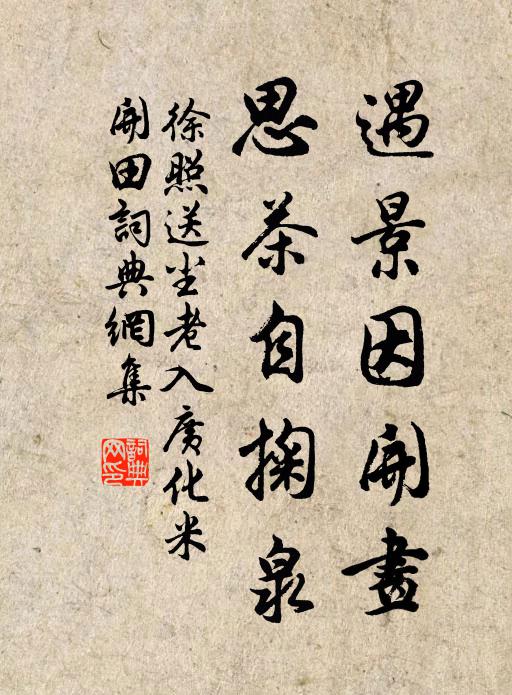 遇景因開畫
思茶自掬泉
徐照送尘老入廣化米
開田詞典網集
詞典
网印